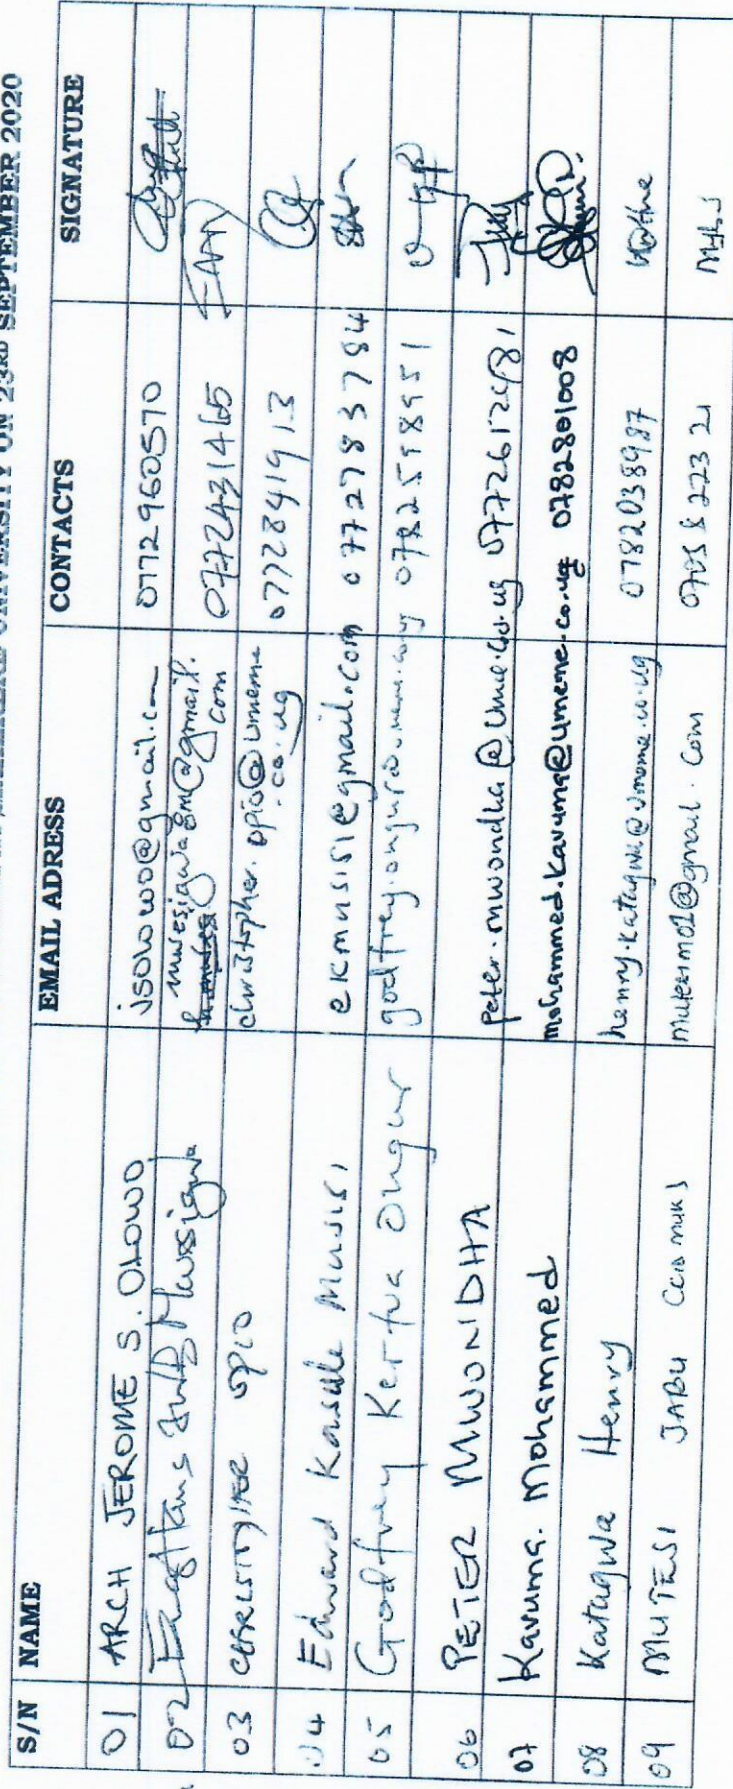 UNIVERSITY ON 23RD SEPTEMBER 2020
S/N NAME EMAIL ADRESS CONTACTS SIGNATURE
01 ARCH JEROME S. OLOWO jsolowo@gmail.com 0772960570
02 Mwesigwa mwesigwa gm@gmail.com 0772431465
03 CHRISTOPHER OPIO christopher.opio@umeme.co.ug 0772841913
04 Edward Kasule Musisi ekmusisi@gmail.com 0772783784
05 Godfrey Kerfua Ongur 0782518951
06 PETER MWONDHA peter.mwondha@Ume.co.ug 0772612481
07 Kavuma. Mohammed mohammed.kavuma@umeme.co.ug 0782801008
08 Katugwa Henry henry.katugwa@umeme.co.ug 0782038987
09 MUTESI JABU mutesimo2@gmail.com 0705822321